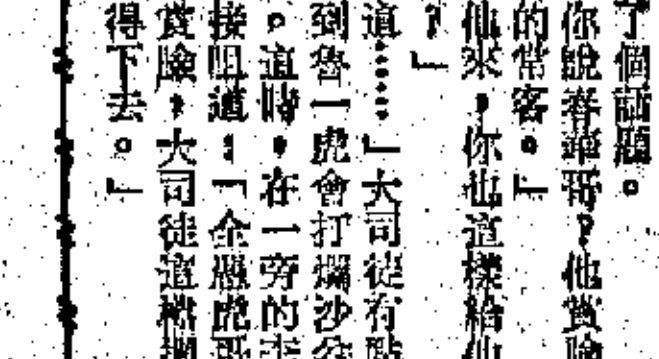 了個話題。
你說春華哥?他賞臉
的常客。」
他來,你也這樣給他
?」
道……」大司徒有點
到魯一虎會打爛沙
。這時,在一旁的
接咀道:「全愚虎哥
賞臉,大司徒這
得下去。」